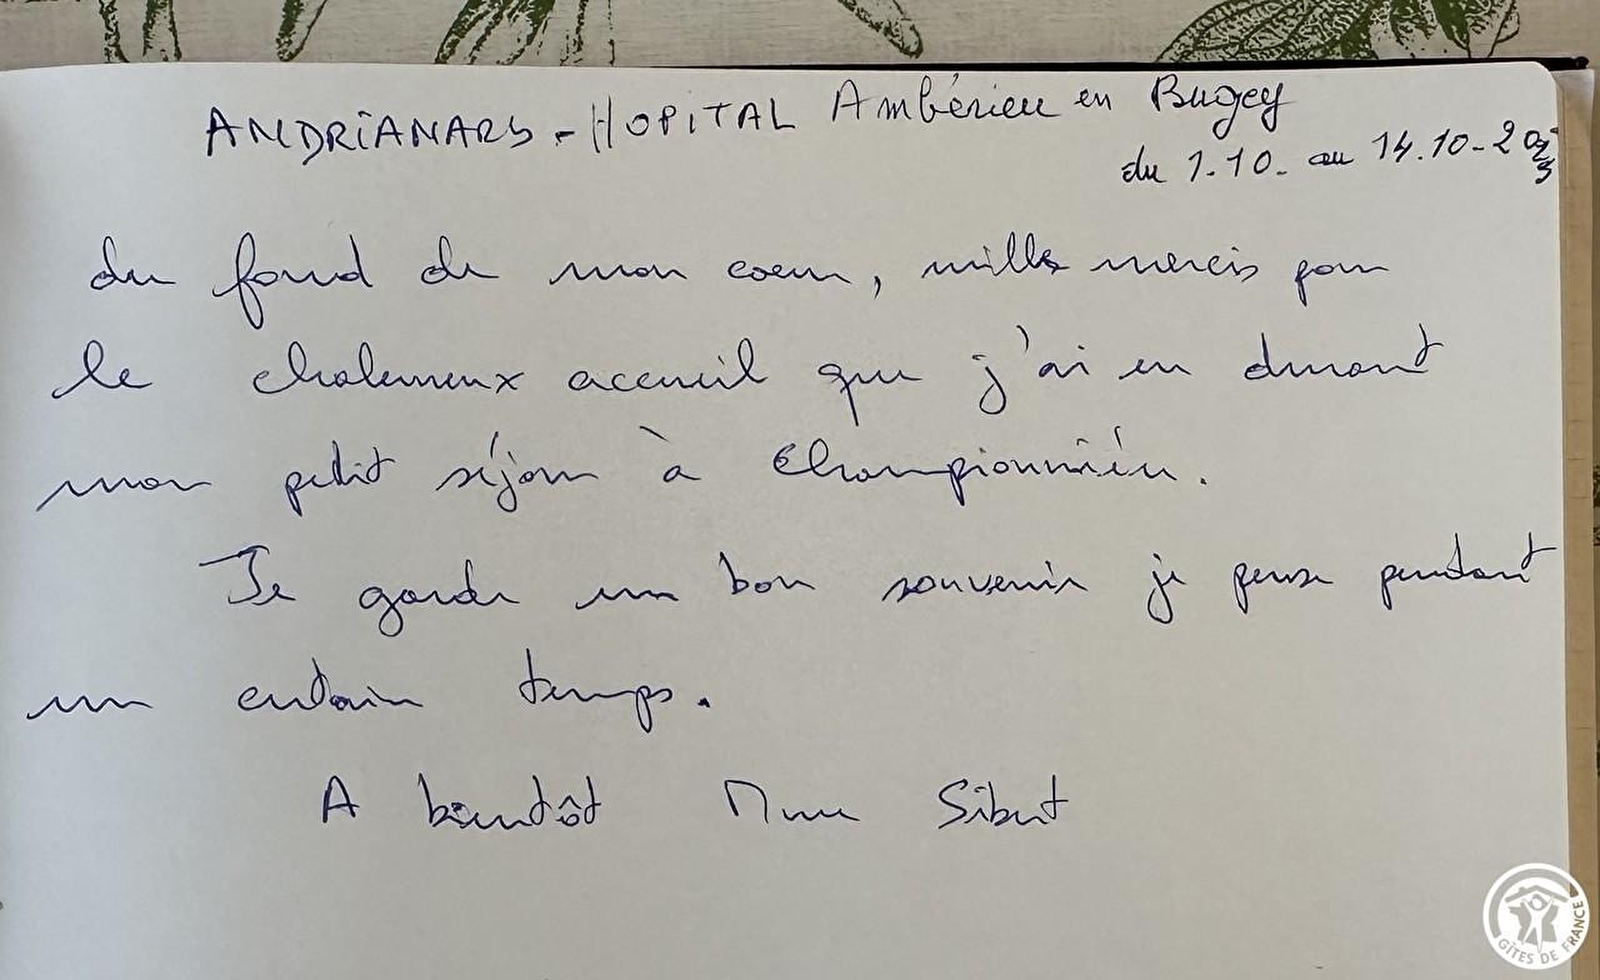 ANDRIANARY - HOPITAL Ambérieu en Bugey
du 1.10. au 14.10-2023
du fond de mon coeur, mille mercis pour
le chaleureux accueil que j'ai eu durant
mon petit séjour à Championnière.
Je garde un bon souvenir je pense pendant
un certain temps.
A bientôt Mme Sibut
GÎTES DE FRANCE